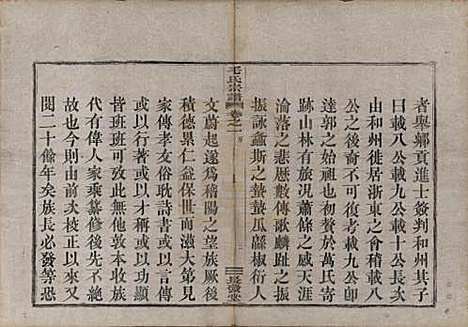 者舉鄉貢進士簽判和州其子
曰載八公載九公載十公長載
由和州徙居浙東之會稽載八
公之為始祖也載九公卽中
達郭之祖也初贅於萬氏時
跡山林有旅況蕭條之感天涯
淪落之悲歷數傳歌麟趾之振
振詠螽斯之蟄蟄瓜緜椒衍人
毛氏宗譜 卷之一
文蔚起遂爲稽陽之望族厥後
積德累仁益保世而滋大第見
家傳孝友俗尚詩書或以德行
或以文章或以政事或以功顯
皆班班可致此無他敦本收族
代有偉人家乘纂修後先不絕
故也迄今則由前次校正而後
閱二十餘年矣族長必發等恐